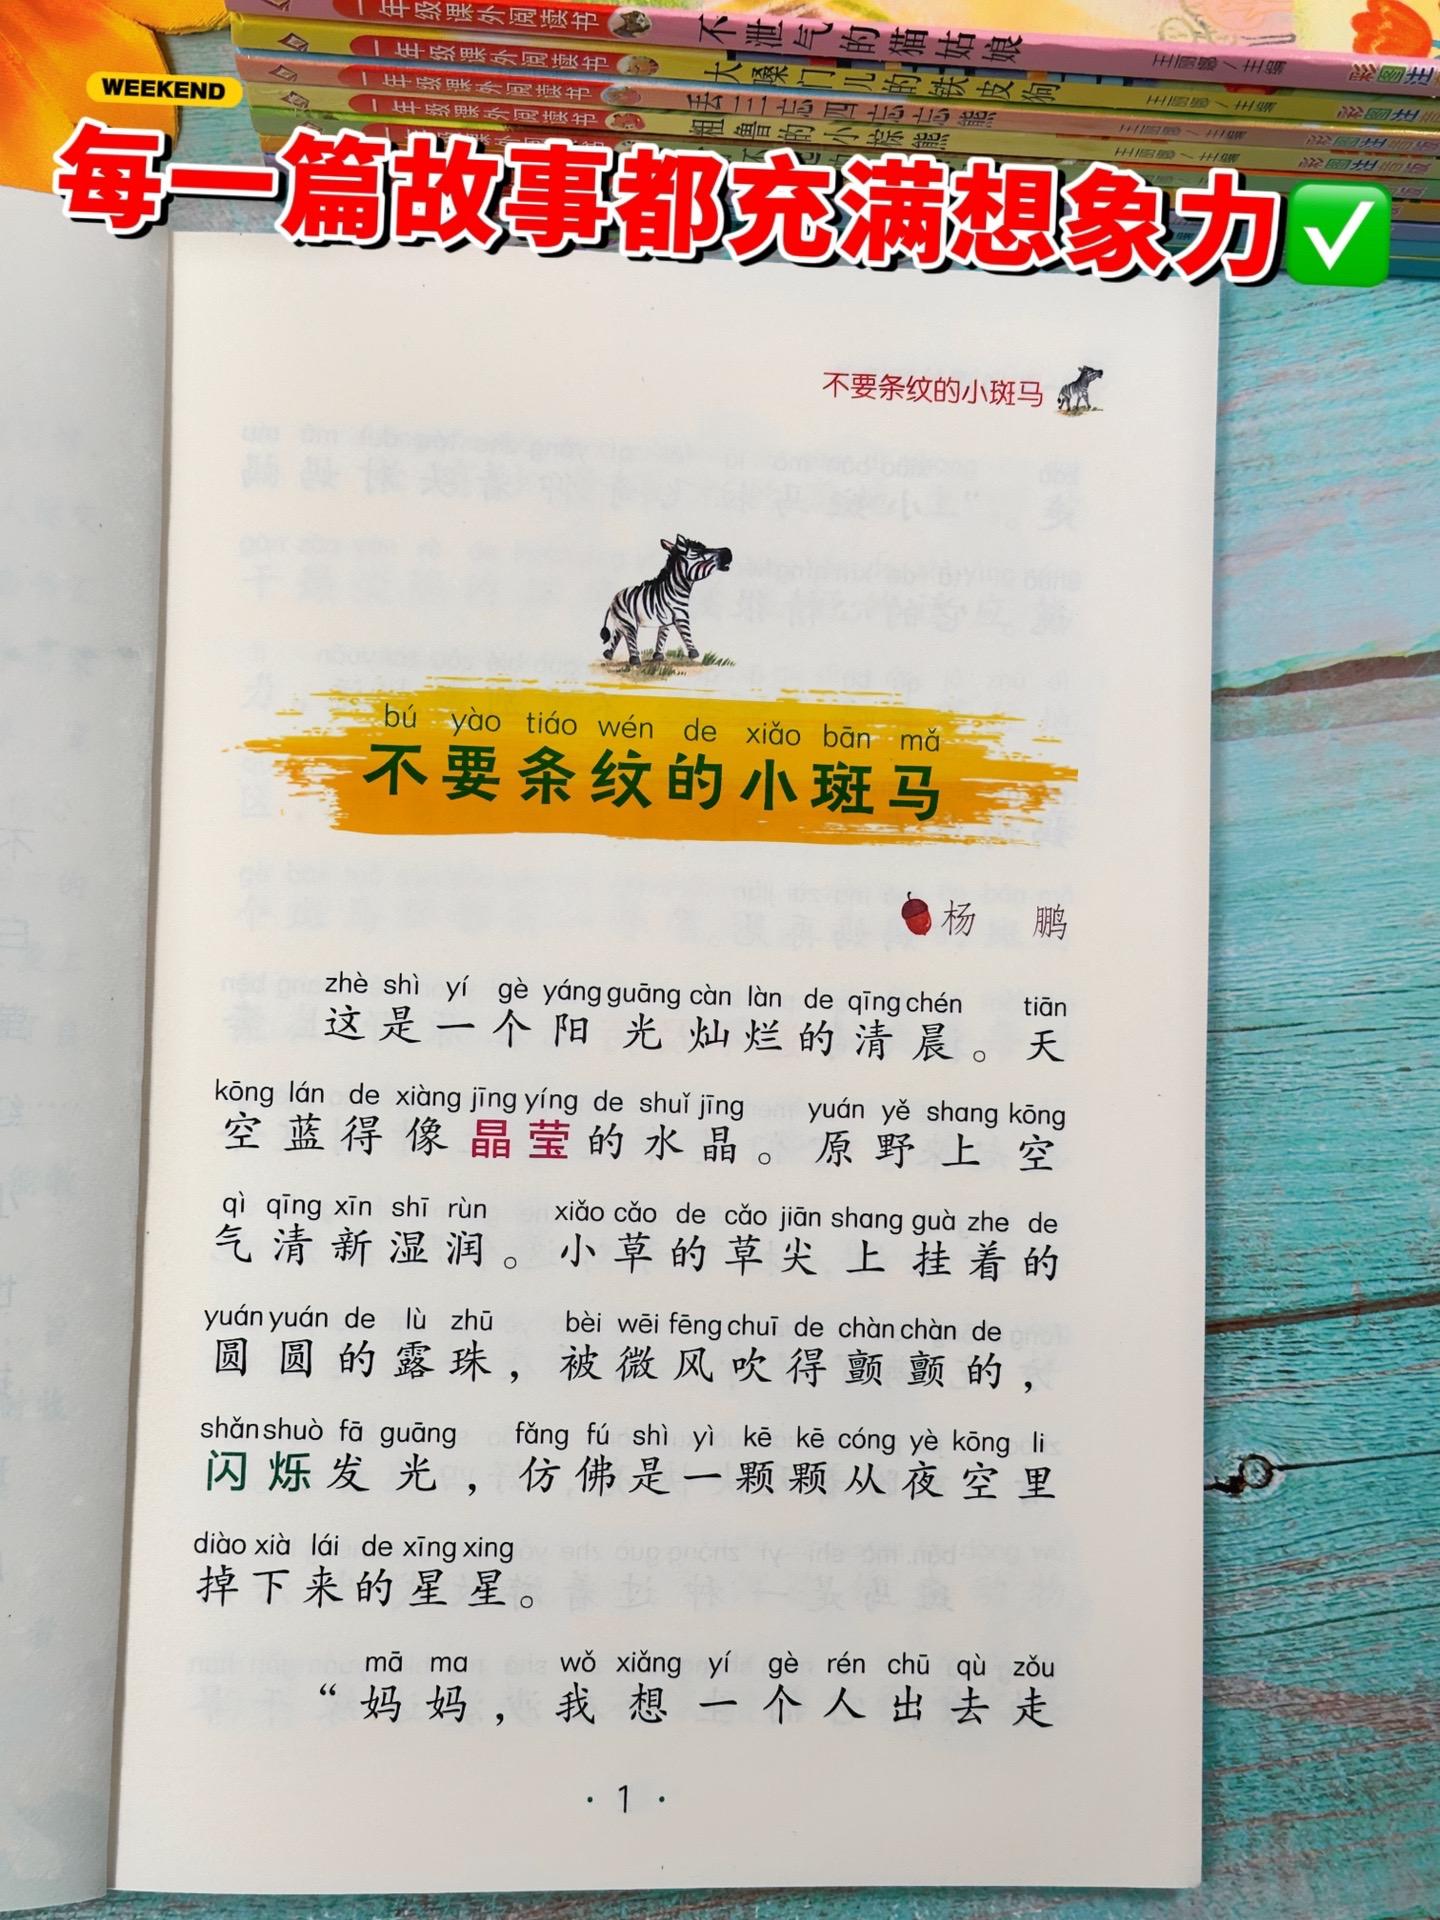 一年级课外阅读书 不泄气的猫姑娘 王丽娜/主编 彩图注
一年级课外阅读书 大嗓门儿的铁皮狗 王丽娜/主编
一年级课外阅读书 丢三忘四忘忘熊 王丽娜/主编
一年级课外阅读书 粗鲁的小棕熊 王丽娜/主编
WEEKEND
每一篇故事都充满想象力✅
不要条纹的小斑马
bú yào tiáo wén de xiǎo bān mǎ
不要条纹的小斑马
杨 鹏
zhè shì yí gè yáng guāng càn làn de qīng chén tiān
这是一个阳光灿烂的清晨。天
kōng lán de xiàng jīng yíng de shuǐ jīng yuán yě shang kōng
空蓝得像晶莹的水晶。原野上空
qì qīng xīn shī rùn xiǎo cǎo de cǎo jiān shang guà zhe de
气清新湿润。小草的草尖上挂着的
yuán yuán de lù zhū bèi wēi fēng chuī de chàn chàn de
圆圆的露珠，被微风吹得颤颤的，
shǎn shuò fā guāng fǎng fú shì yì kē kē cóng yè kōng li
闪烁发光，仿佛是一颗颗从夜空里
diào xià lái de xīng xing
掉下来的星星。
mā ma wǒ xiǎng yí gè rén chū qù zǒu
“妈妈，我想一个人出去走
· 1 ·